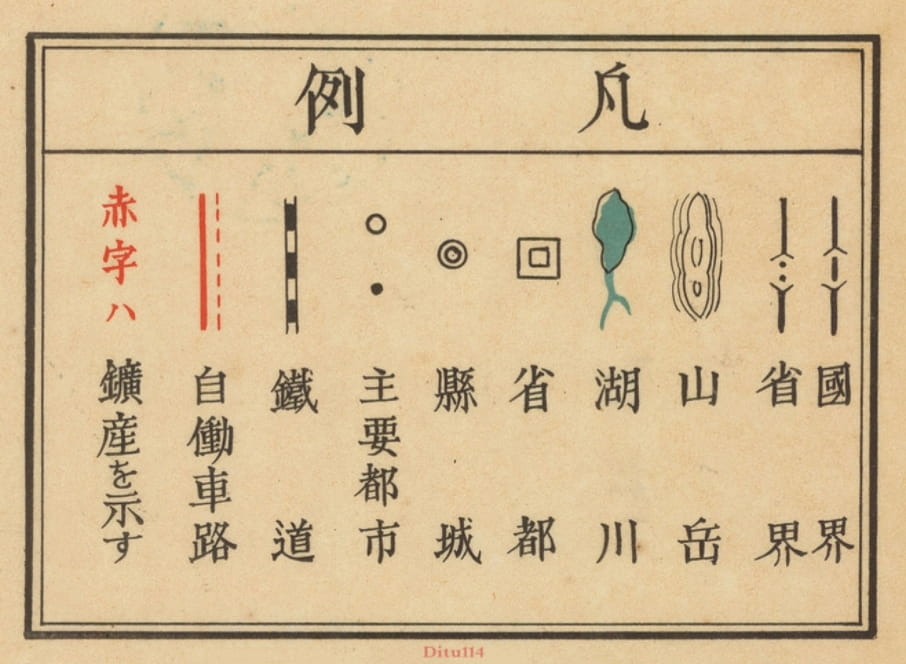 凡例
國界
省界
山岳
湖川
省都
縣城
主要都市
鐵道
自働車路
赤字ハ鑛産を示す
Ditu114